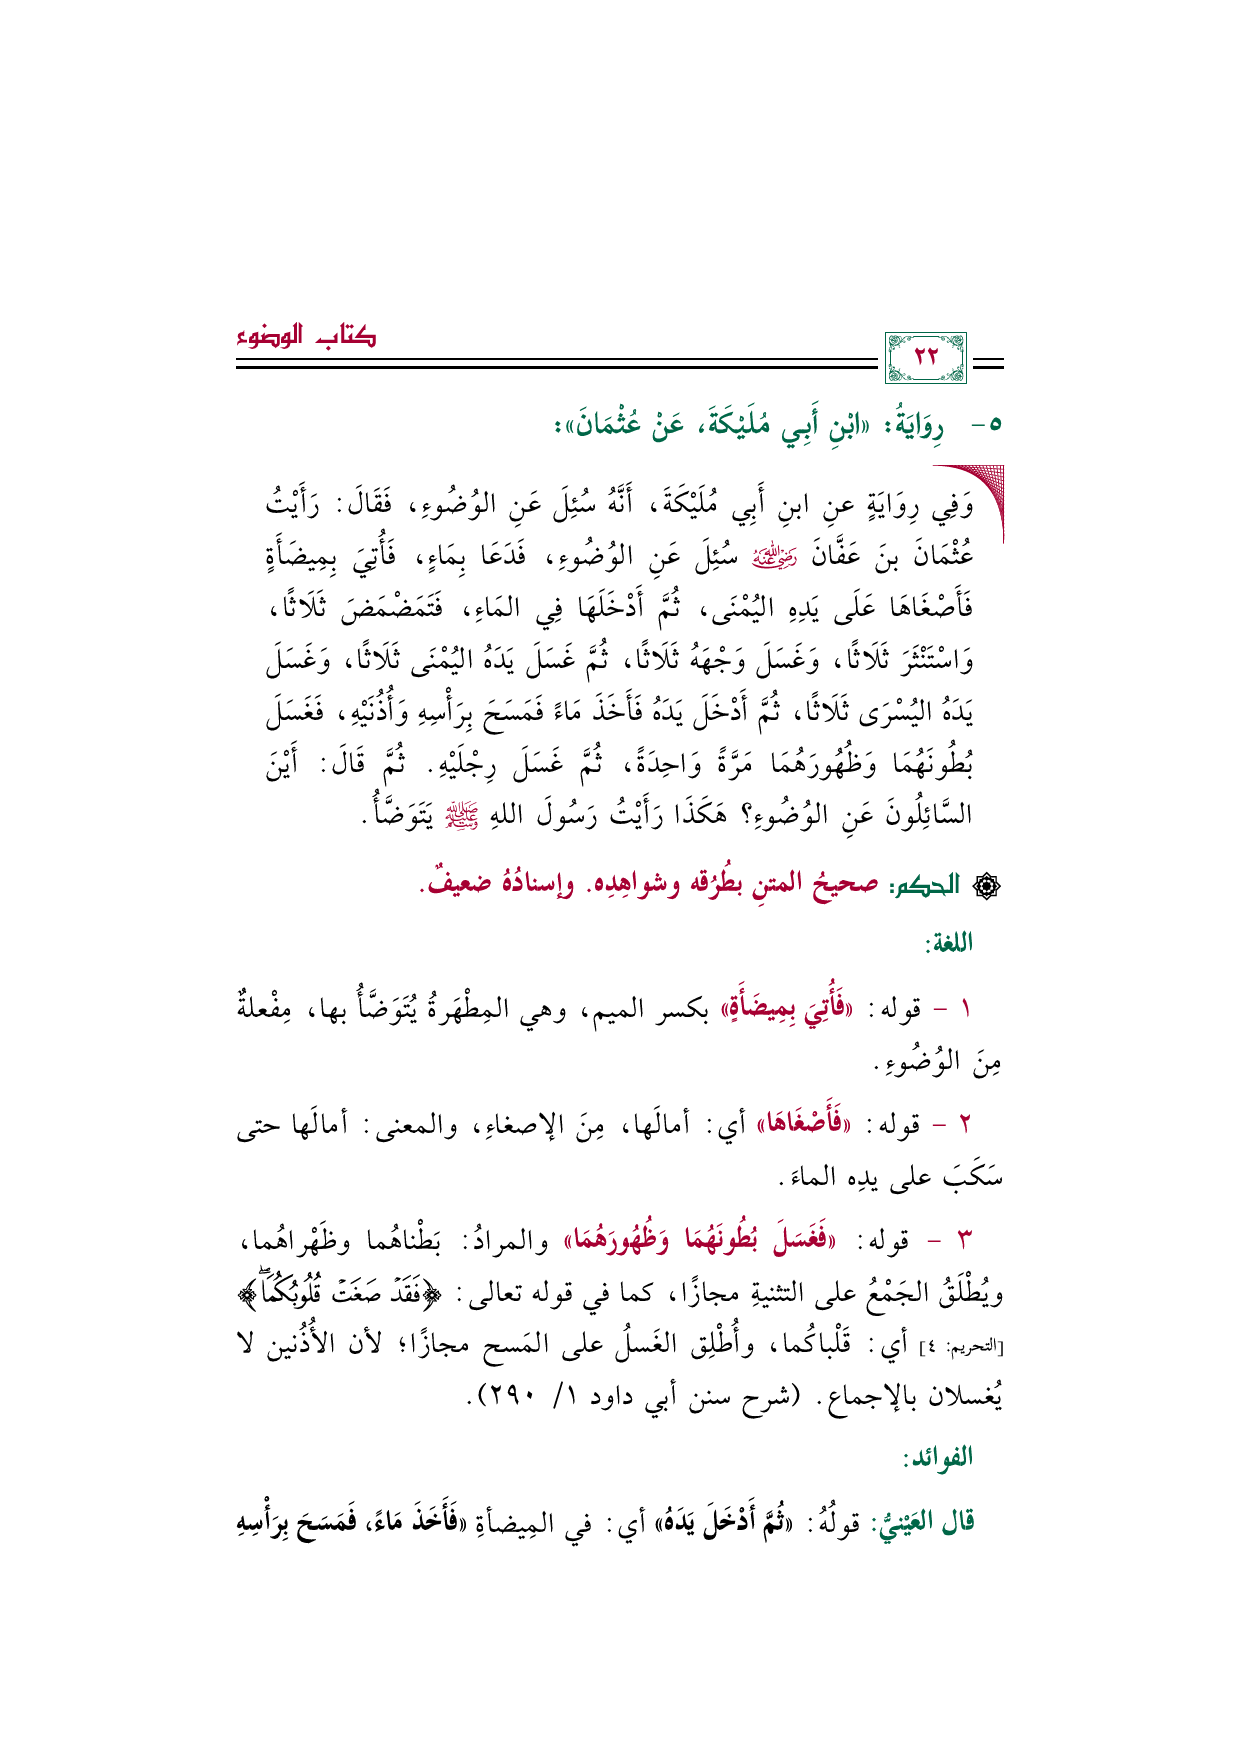 كتاب الوضوء
٢٢
٥- رِوَايَةُ: «ابْنِ أَبِي مُلَيْكَةَ، عَنْ عُثْمَانَ»:
وَفِي رِوَايَةٍ عنِ ابنِ أَبِي مُلَيْكَةَ، أَنَّهُ سُئِلَ عَنِ الوُضُوءِ، فَقَالَ: رَأَيْتُ
عُثْمَانَ بنَ عَفَّانَ رضي الله عنه سُئِلَ عَنِ الوُضُوءِ، فَدَعَا بِمَاءٍ، فَأُتِيَ بِمِيضَأَةٍ
فَأَصْغَاهَا عَلَى يَدِهِ اليُمْنَى، ثُمَّ أَدْخَلَهَا فِي المَاءِ، فَتَمَضْمَضَ ثَلَاثًا،
وَاسْتَنْثَرَ ثَلَاثًا، وَغَسَلَ وَجْهَهُ ثَلَاثًا، ثُمَّ غَسَلَ يَدَهُ اليُمْنَى ثَلَاثًا، وَغَسَلَ
يَدَهُ اليُسْرَى ثَلَاثًا، ثُمَّ أَدْخَلَ يَدَهُ فَأَخَذَ مَاءً فَمَسَحَ بِرَأْسِهِ وَأُذُنَيْهِ، فَغَسَلَ
بُطُونَهُمَا وَظُهُورَهُمَا مَرَّةً وَاحِدَةً، ثُمَّ غَسَلَ رِجْلَيْهِ. ثُمَّ قَالَ: أَيْنَ
السَّائِلُونَ عَنِ الوُضُوءِ؟ هَكَذَا رَأَيْتُ رَسُولَ اللهِ ﷺ يَتَوَضَّأُ.
الحكم: صحيحُ المتنِ بطُرُقه وشواهِدِه. وإسنادُهُ ضعيفٌ.
اللغة:
١ - قوله: «فَأُتِيَ بِمِيضَأَةٍ» بكسر الميم، وهي المِطْهَرةُ يُتَوَضَّأُ بها، مِفْعلةٌ
مِنَ الوُضُوءِ.
٢ - قوله: «فَأَصْغَاهَا» أي: أمالَها، مِنَ الإصغاءِ، والمعنى: أمالَها حتى
سَكَبَ على يدِه الماءَ.
٣ - قوله: «فَغَسَلَ بُطُونَهُمَا وَظُهُورَهُمَا» والمرادُ: بَطْناهُما وظَهْراهُما،
ويُطْلَقُ الجَمْعُ على التثنيةِ مجازًا، كما في قوله تعالى: ﴿فَقَدۡ صَغَتۡ قُلُوبُكُمَاۖ﴾
[التحريم: ٤] أي: قَلْباكُما، وأُطْلِق الغَسلُ على المَسح مجازًا؛ لأن الأُذُنين لا
يُغسلان بالإجماع. (شرح سنن أبي داود ١/ ٢٩٠).
الفوائد:
قال العَيْنيُّ: قولُهُ: «ثُمَّ أَدْخَلَ يَدَهُ» أي: في المِيضأةِ «فَأَخَذَ مَاءً، فَمَسَحَ بِرَأْسِهِ